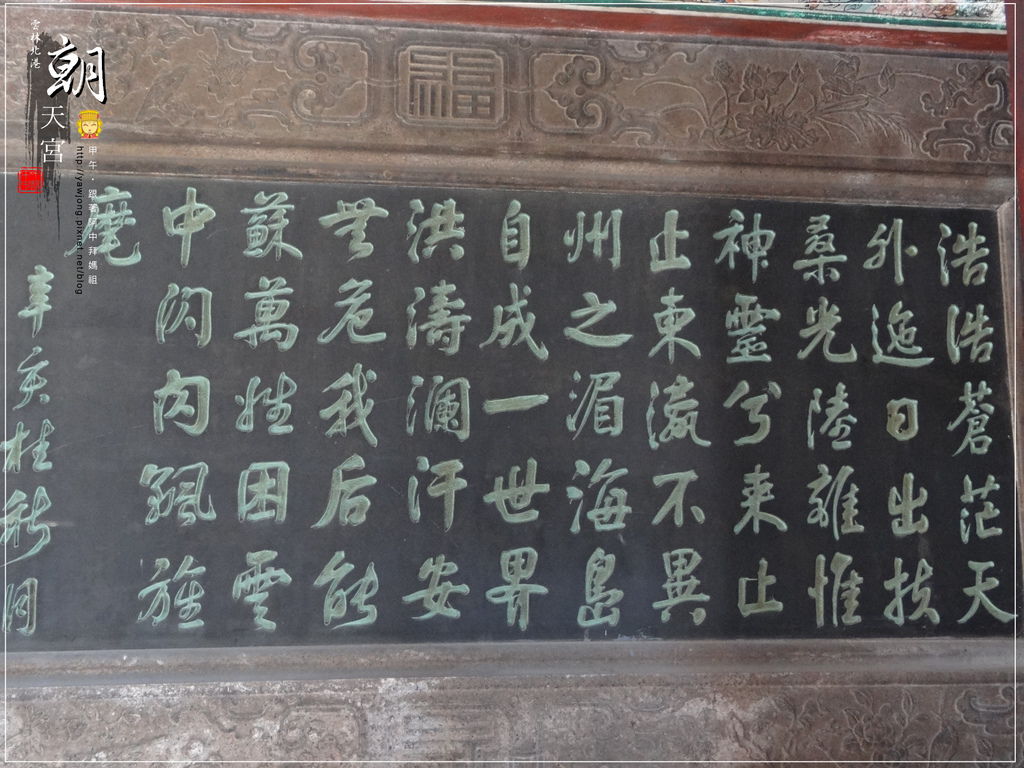 浩浩蒼茫天
外迤日出扶
桑光陸離惟
神靈兮来止
止東瀛不異
州之湄海島
自成一世界
洪濤瀾汗安
無危我后能
蘇萬姓困雲
中閃内飄旌
麾
辛亥桂秋
福
雲林北港
朝天宮
甲午‧跟著中拜媽祖
http://yawjong.pixnet.net/blog